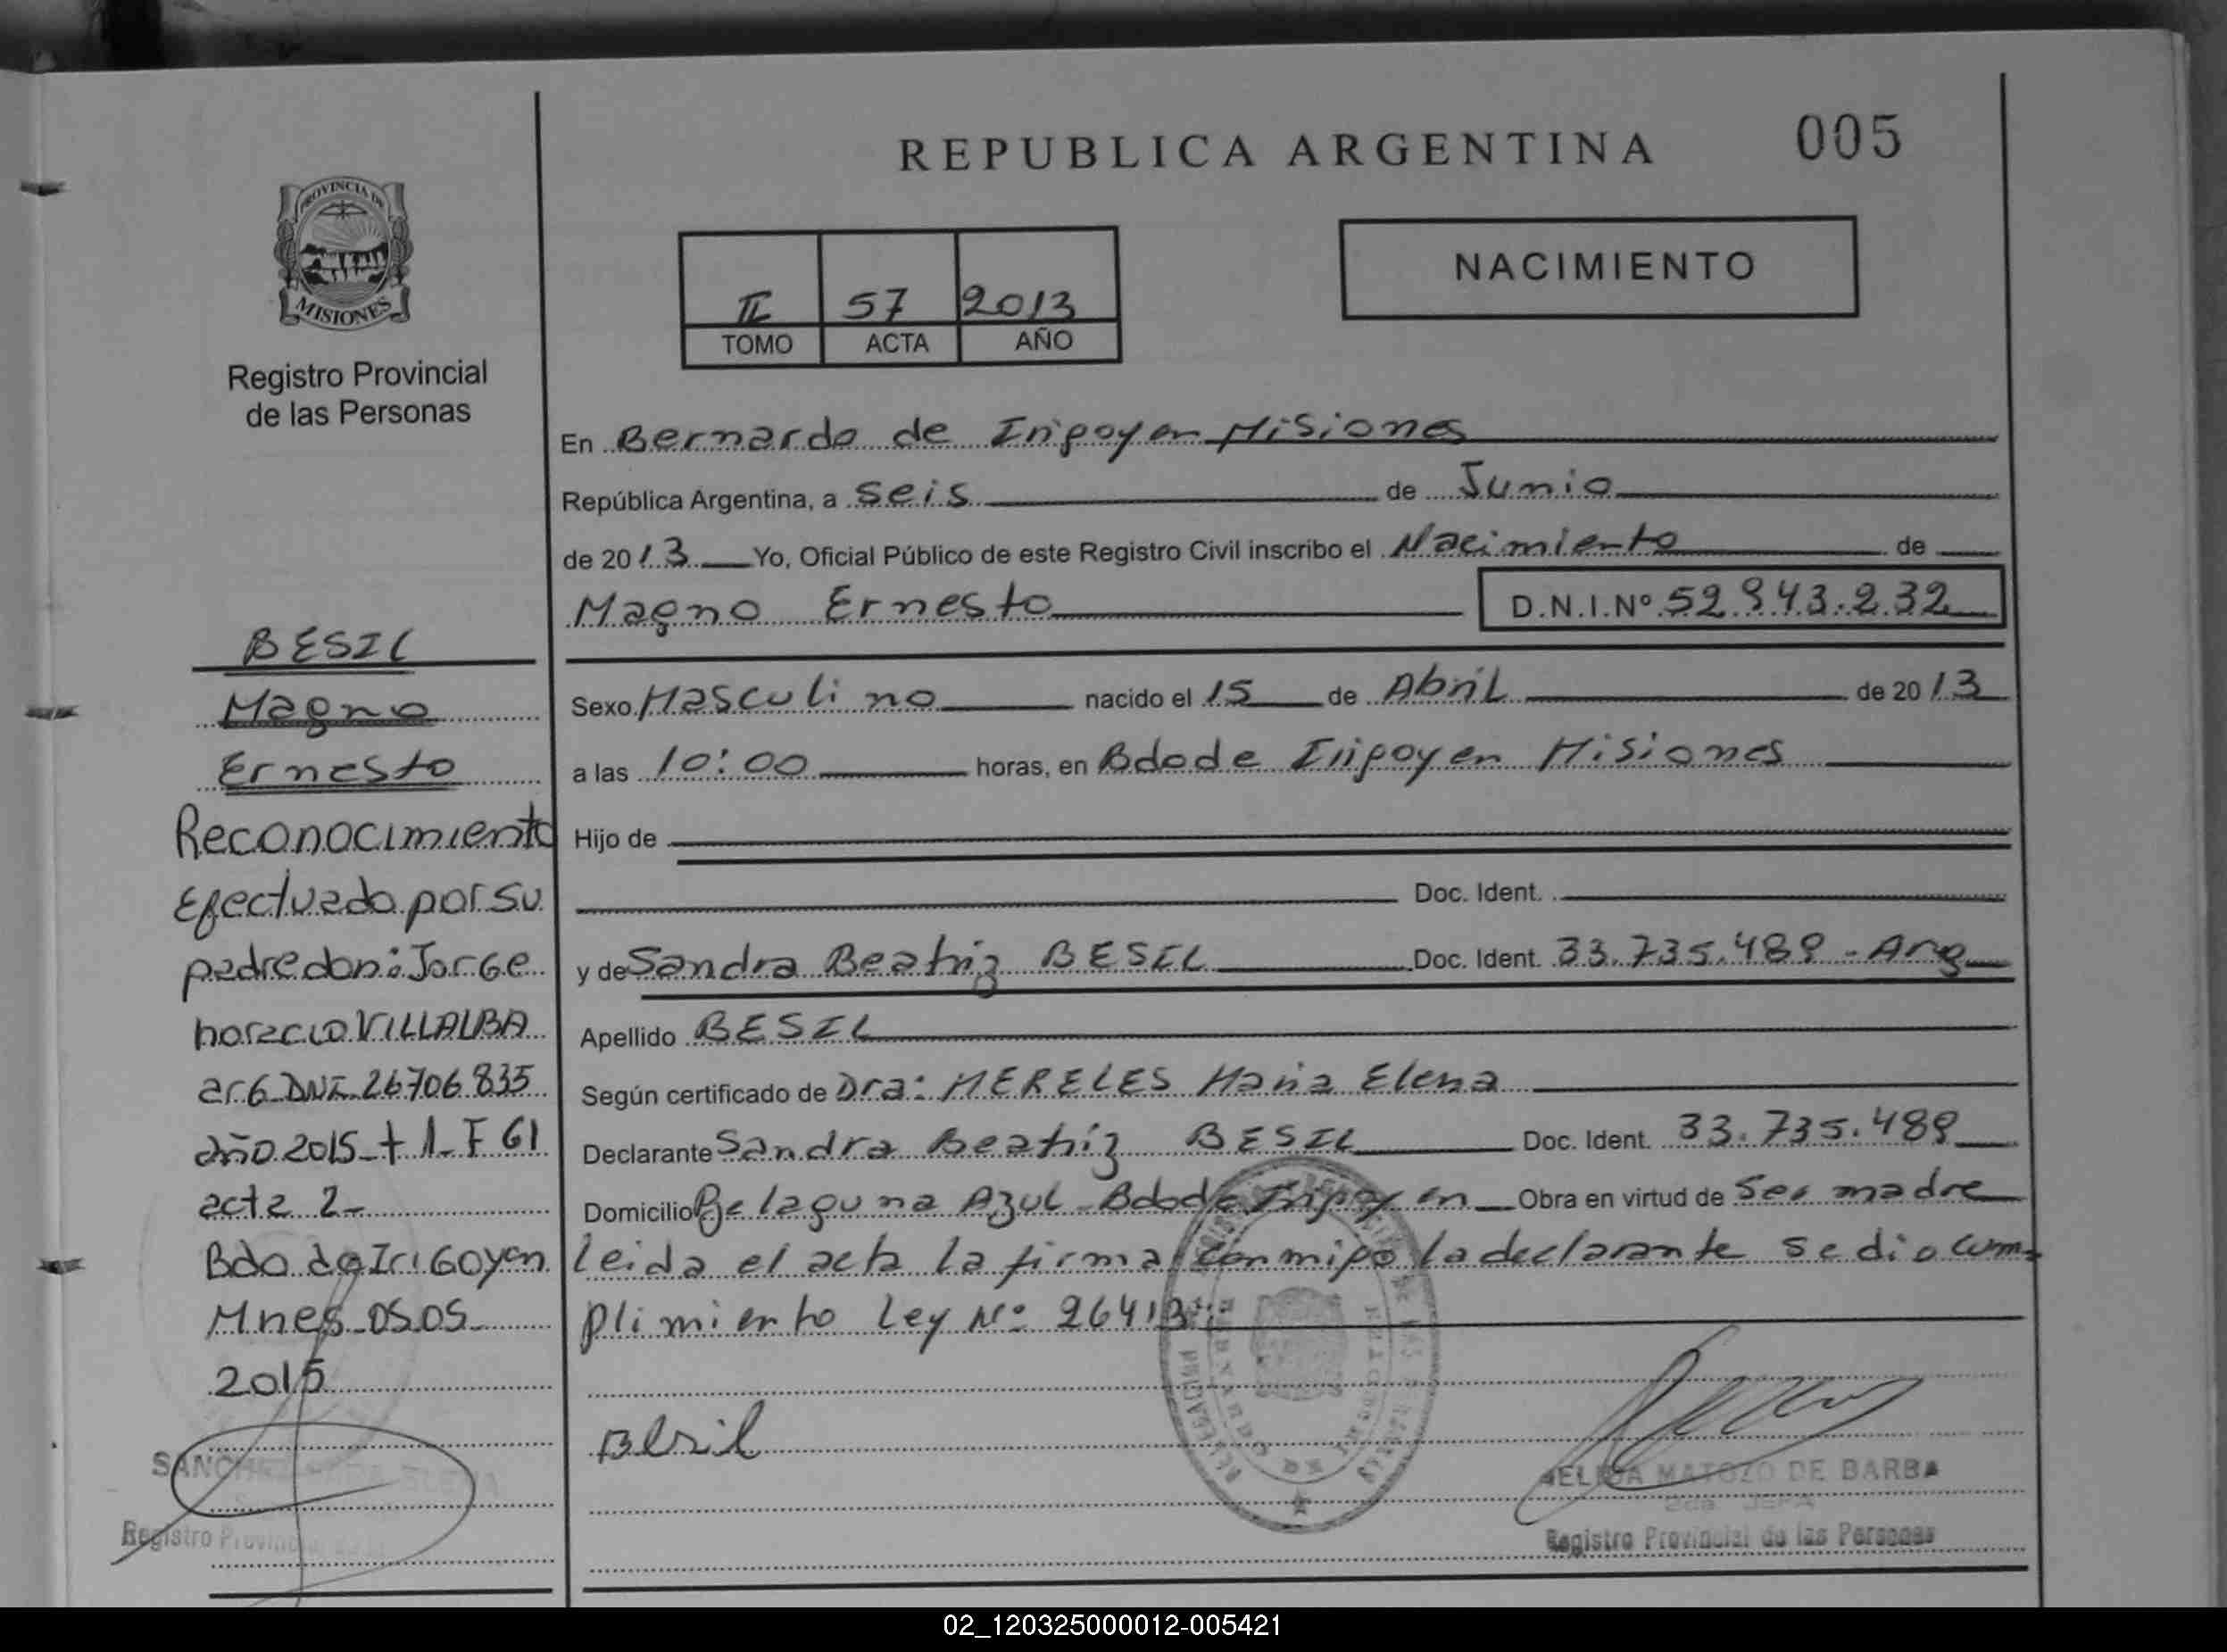 REPUBLICA ARGENTINA
005
PROVINCIA DE
MISIONES
Registro Provincial
de las Personas
II 57 2013
TOMO ACTA AÑO
NACIMIENTO
En Bernardo de Irigoyen Misiones
República Argentina, a seis de Junio
de 2013 Yo, Oficial Público de este Registro Civil inscribo el Nacimiento de
Magno Ernesto D.N.I.Nº 52.943.232
Sexo Masculino nacido el 15 de Abril de 2013
a las 10:00 horas, en Bdo de Irigoyen Misiones
Hijo de
Doc. Ident.
y de Sandra Beatriz BESIL Doc. Ident. 33.735.489 - Arg
Apellido BESIL
Según certificado de Dra: MERELES Maria Elena
Declarante Sandra Beatriz BESIL Doc. Ident. 33.735.489
Domicilio Bº laguna Azul - Bdo de Irigoyen Obra en virtud de Ser madre
leida el acta la firma conmigo la declarante se dio cum=
plimiento Ley Nº 26413
BESIL
Magno
Ernesto
Reconocimiento
Efectuado por su
padre don: Jorge
horacio VILLALBA
arG DNI 26706835
año 2015 - t 1 - F 61
acta 2 -
Bdo de IriGoyen
Mnes 05.05.
2015
Besil
NELIDA MATOZO DE BARBA
2da. JEFA
Registro Provincial de las Personas
Registro
02_120325000012-005421